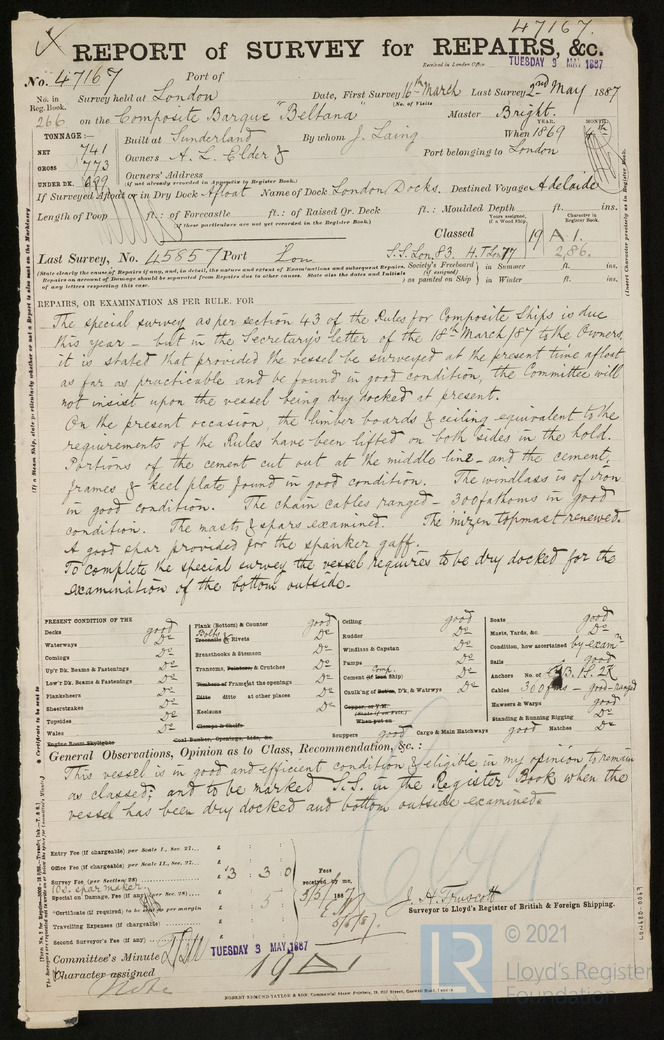 47167.
REPORT of SURVEY for REPAIRS, &c.
Received in London Office TUESDAY 3 MAY 1887
No. 47167 Port of
No. in Reg. Book. Survey held at London Date, First Survey 16th March Last Survey 2nd May 1887
(No. of Visits)
266 on the Composite Barque "Beltana" Master Bright.
TONNAGE:— YEAR. MONTH.
NET 741 Built at Sunderland By whom J. Laing When 1869
GROSS 773 Owners A. L. Elder & Port belonging to London
UNDER DK. 699 Owners' Address
(if not already recorded in Appendix to Register Book.)
If Surveyed Afloat or in Dry Dock Afloat Name of Dock London Docks. Destined Voyage Adelaide
Length of Poop ft.: of Forecastle ft.: of Raised Qr. Deck ft.: Moulded Depth ft. ins.
(if these particulars are not yet recorded in the Register Book.)
Classed 19 A 1.
Last Survey, No. 45857 Port Lon S.S. Lon. 83. H.T. Lon 77 2,86.
(State clearly the cause of Repairs if any, and, in detail, the nature and extent of Examinations and subsequent Repairs.
Repairs on account of Damage should be separated from Repairs due to other causes. State also the dates and Initials
of any letters respecting this case.
Society's Freeboard (if assigned) as painted on Ship
in Summer ft. ins.
in Winter ft. ins.
REPAIRS, OR EXAMINATION AS PER RULE. FOR
The special survey as per section 43 of the Rules for Composite Ships is due
this year – but in the Secretary's letter of the 18th March/87 to the Owners,
it is stated that provided the vessel be surveyed at the present time afloat
as far as practicable and be found in good condition, the Committee will
not insist upon the vessel being dry docked at present.
On the present occasion, the limber boards & ceiling equivalent to the
requirements of the Rules have been lifted on both sides in the hold.
Portions of the cement cut out at the middle line – and the cement,
frames & keel plate found in good condition. The windlass is of iron
in good condition. The chain cables ranged – 300 fathoms in good
condition. The masts & spars examined. The mizen topmast renewed.
A good spar provided for the spanker gaff.
To complete the special survey the vessel requires to be dry docked for the
examination of the bottom outside.
PRESENT CONDITION OF THE
Decks good
Waterways Do
Comings Do
Up'r Dk. Beams & Fastenings Do
Low'r Dk. Beams & Fastenings Do
Planksheers Do
Sheerstrakes Do
Topsides Do
Wales Do
Engine Room Skylights
Plank (Bottom) & Counter good
Bolts Treenails & Rivets Do
Breasthooks & Stemson Do
Transoms, Pointers, & Crutches Do
Timbers of Frame at the openings Do
Ditto ditto at other places Do
Keelsons Do
Clamps & Shelfs
Coal Bunker, Openings, Lids, &c.
Ceiling good
Rudder Do
Windlass & Capstan Do
Pumps Do
Cement (if Iron Ship) Comp. Do
Caulk'ng of Bottm, D'k, & Watrwys Do
Copper, or Y.M.
(State if on Felt.)
When put on
Scuppers good Cargo & Main Hatchways good Hatches Do
Boats good
Masts, Yards, &c. Do
Condition, how ascertained by exam
Sails good
Anchors No. of 3B. 1S. 2K
Cables 300 fms – good – ranged
Hawsers & Warps good
Standing & Running Rigging Do
General Observations, Opinion as to Class, Recommendation, &c. :
This vessel is in good and efficient condition & eligible in my opinion to remain
as classed; and to be marked S.S. in the Register Book when the
vessel has been dry docked and bottom outside examined.
Entry Fee (if chargeable) per Scale I., Sec. 27... £
Office Fee (if chargeable) per Scale II., Sec. 27... £
Survey Fee (per Section 28) £ 3 : 3 : 0
10s. spar maker
Special on Damage, Fee (if any) (per Sec. 28)... £ 5
Certificate (if required) to be sent as per margin £
Travelling Expenses (if chargeable) £
Second Surveyor's Fee (if any) £
Fees received by me,
3/5/1887
J. H. Truscott
Surveyor to Lloyd's Register of British & Foreign Shipping.
Committee's Minute TUESDAY 3 MAY 1887
Character assigned 19 A 1
Note
ROBERT EDMUND TAYLOR & SON
LR
© 2021
Lloyd's Register
Foundation